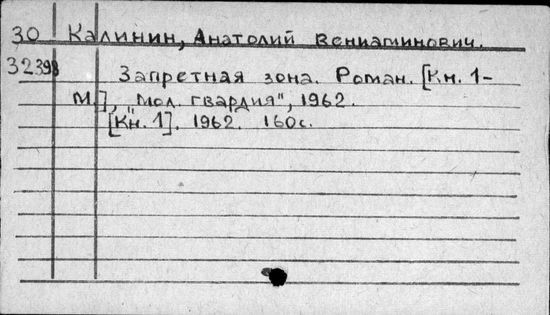 30 Калинин, Анатолий Вениаминович.
32398 Запретная зона. Роман. [Кн. 1-
М.], "Мол. гвардия", 1962.
[Кн. 1]. 1962. 160с.